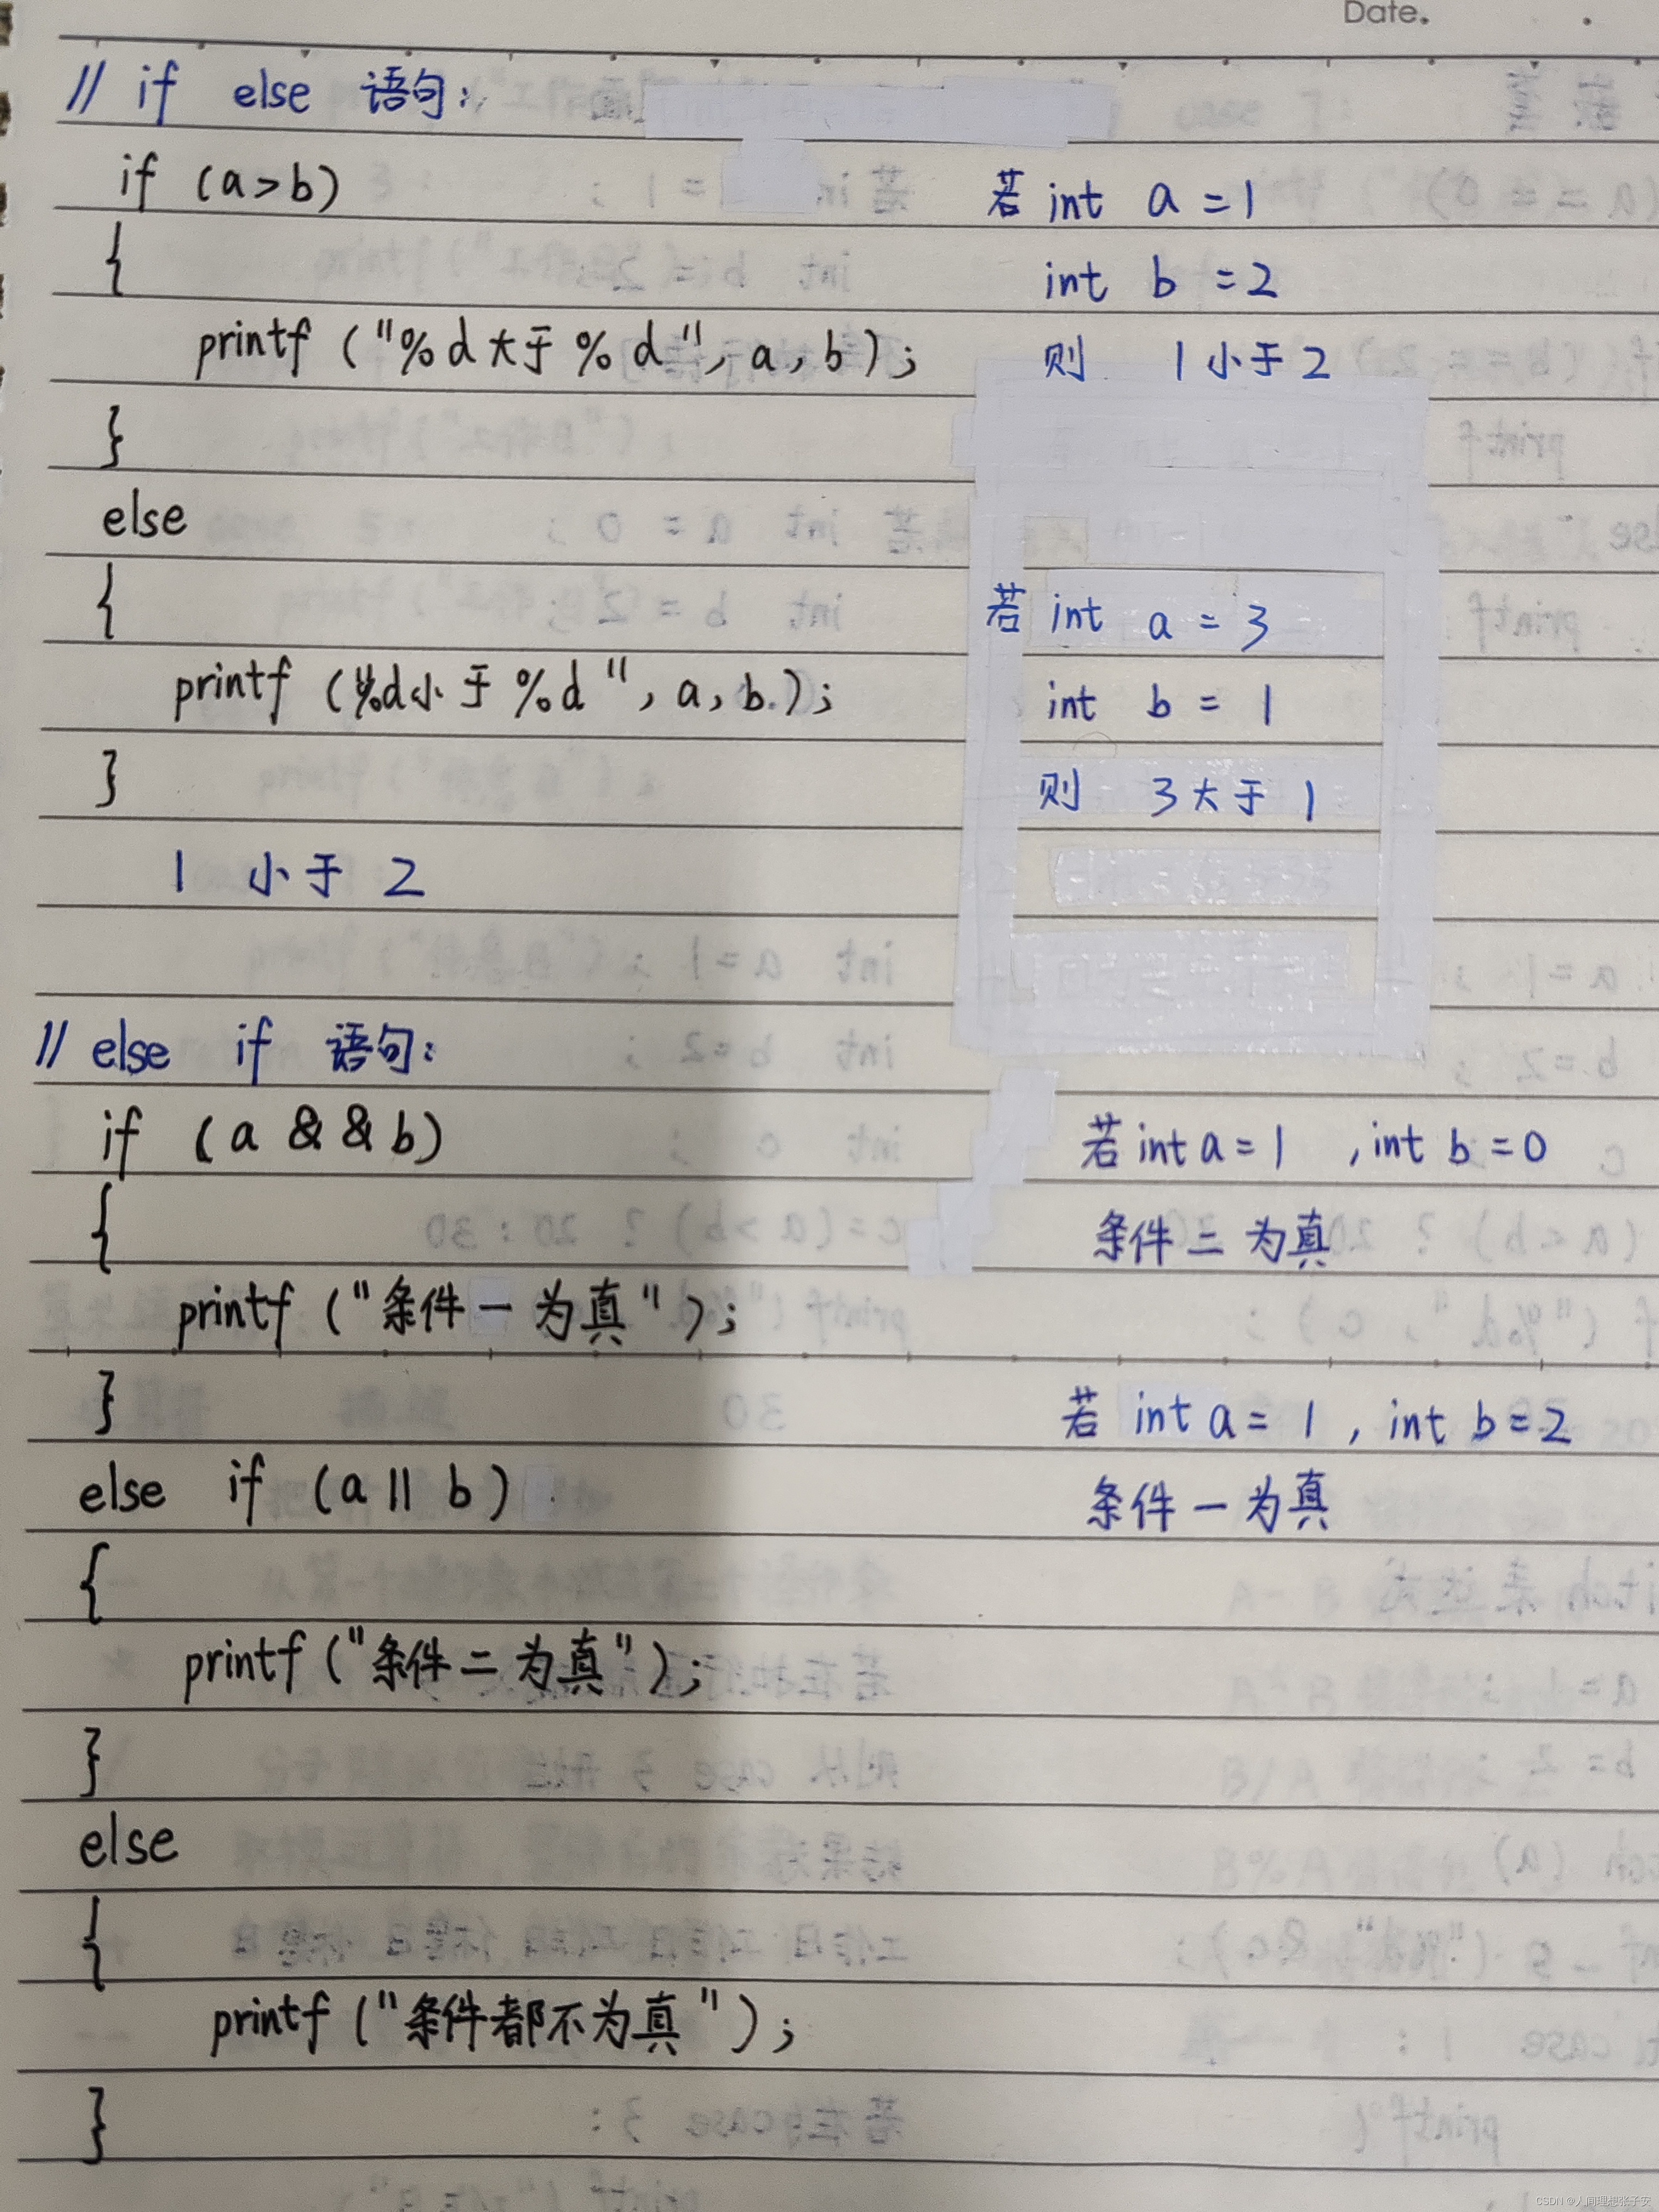 Date.
// if else 语句:
if (a>b)
若 int a =1
{
int b =2
printf ("%d大于%d", a, b);
则 1小于2
}
else
{
若 int a = 3
printf ("%d小于%d", a, b);
int b = 1
}
则 3大于1
1 小于 2
// else if 语句:
if (a && b)
若 int a = 1 , int b = 0
{
条件三为真
printf ("条件一为真");
}
若 int a = 1 , int b = 2
else if (a || b)
条件一为真
{
printf ("条件二为真");
}
else
{
printf ("条件都不为真");
}
CSDN @人间理想张子安